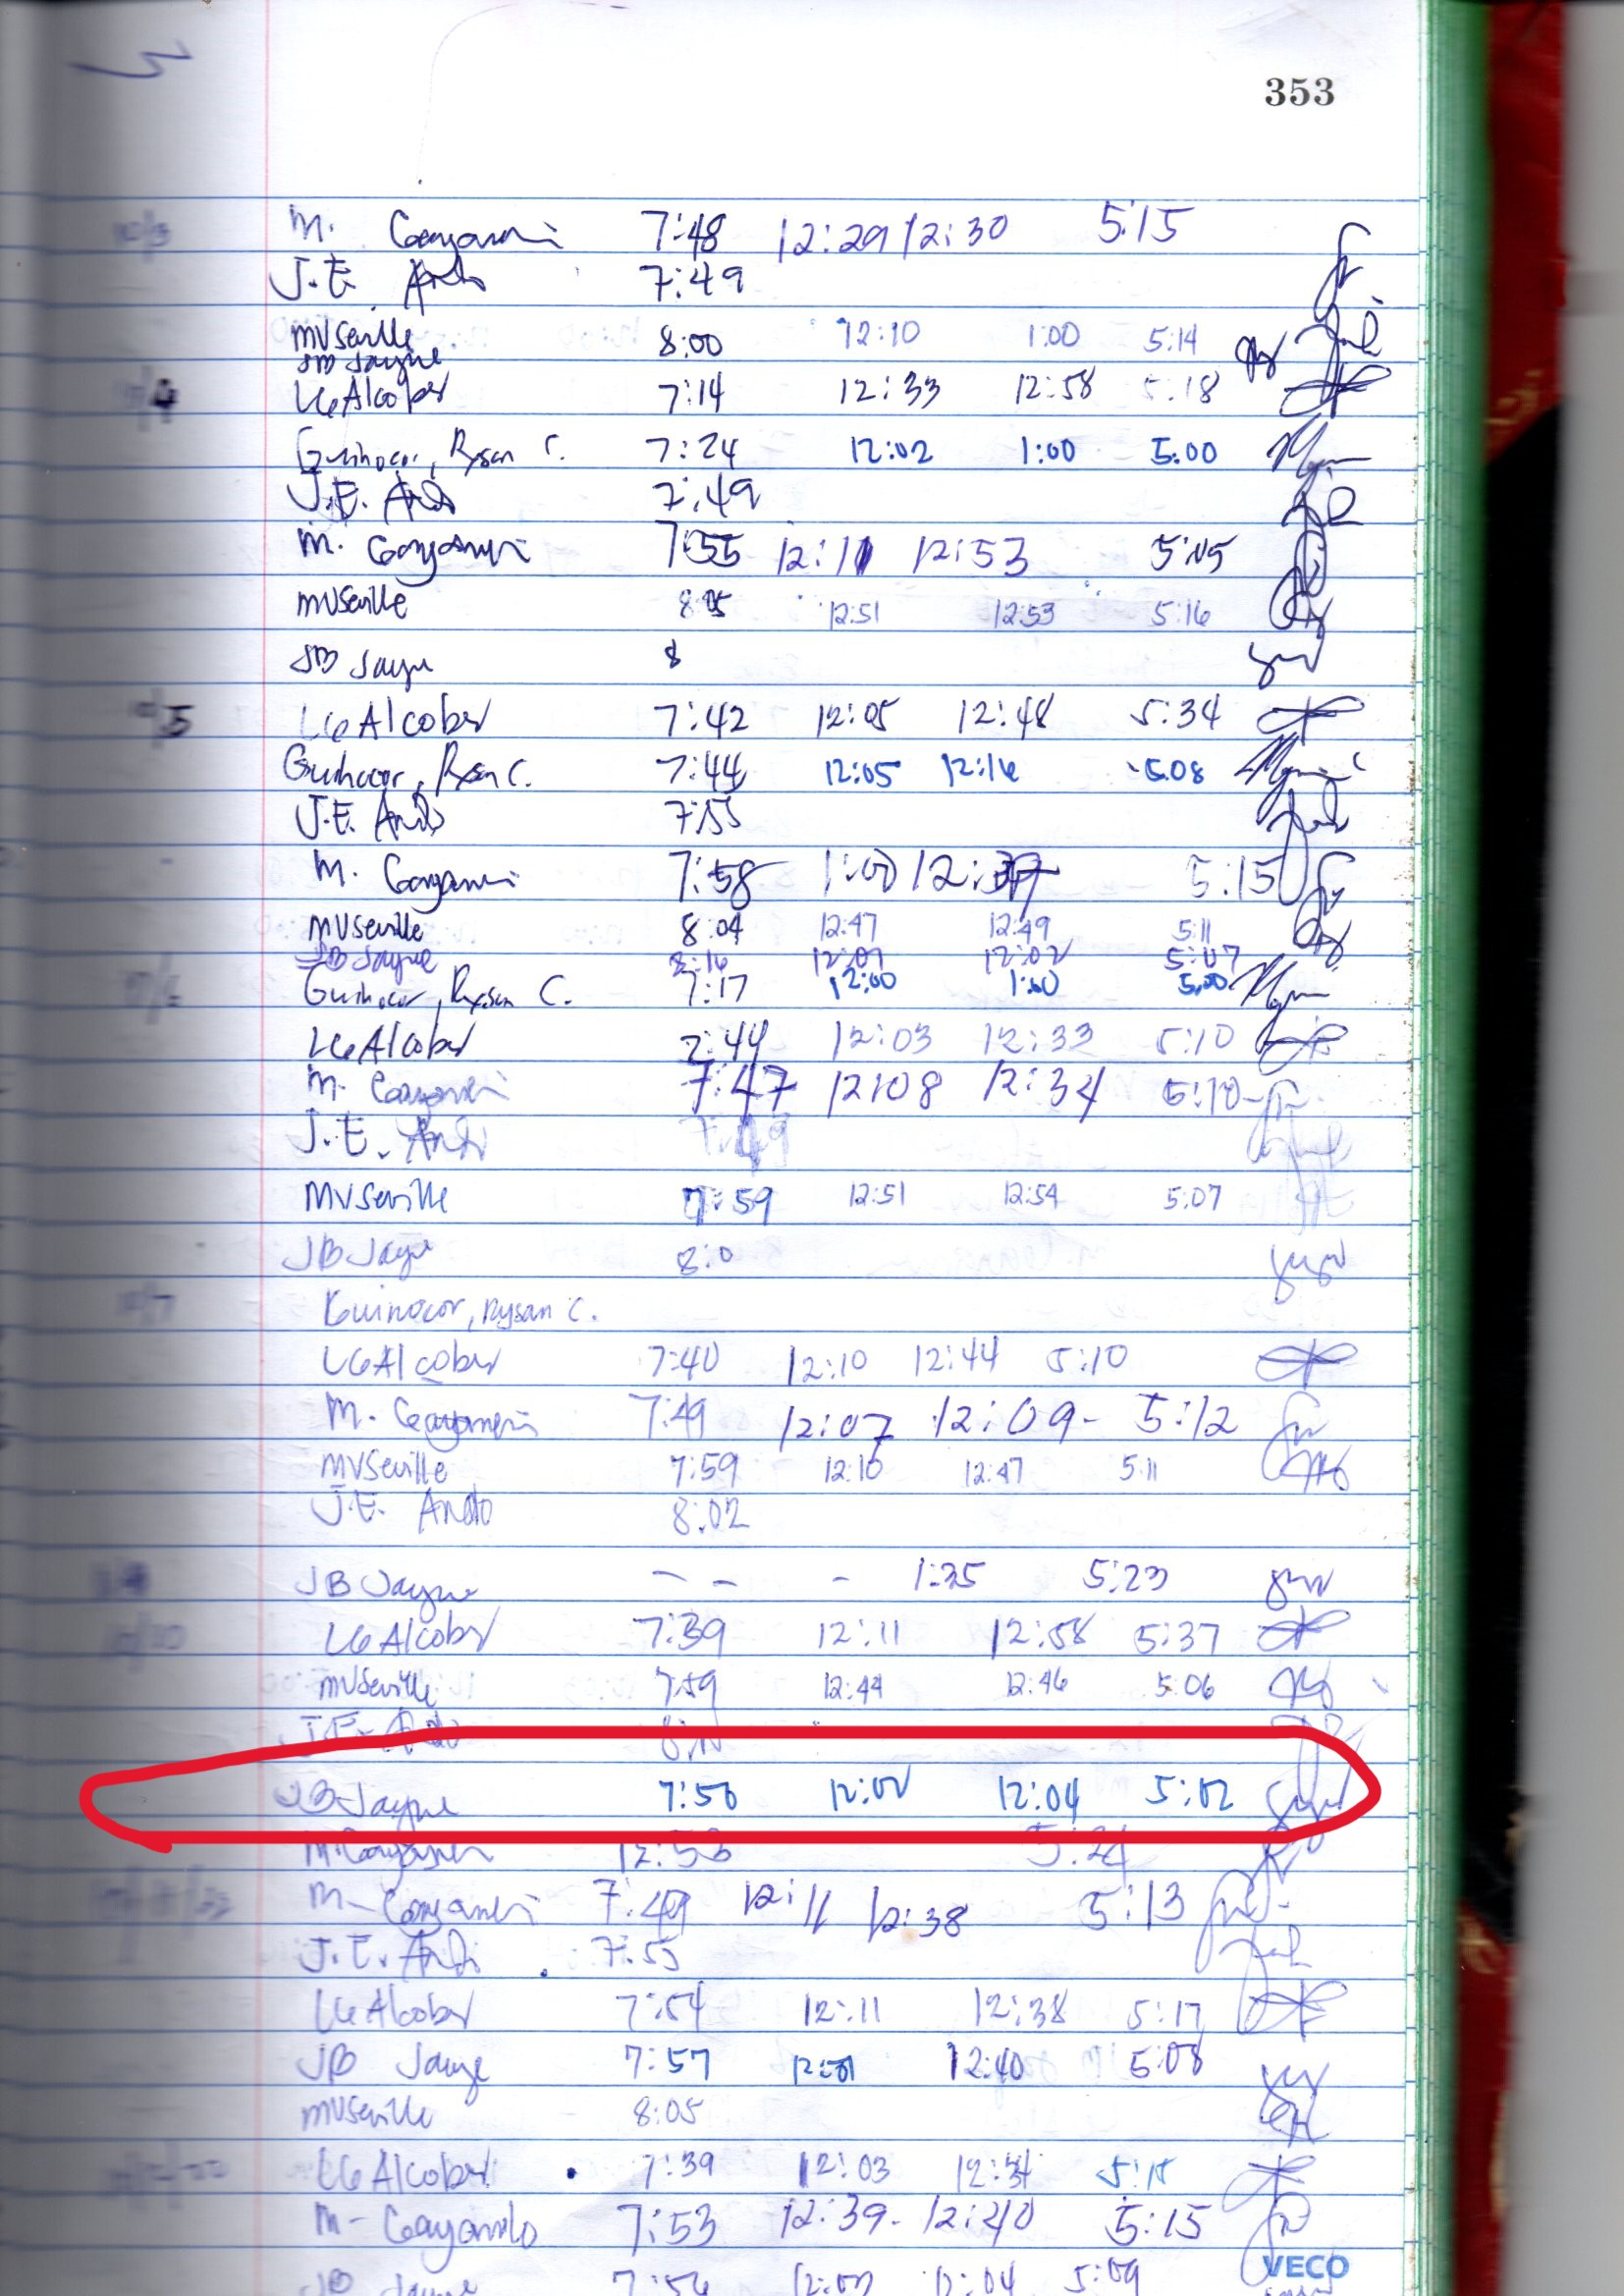 353
10/3 M. 7:48 12:29 12:30 5:15
J.E. Ando 7:49
MVSeville 8:00 12:10 1:00 5:14
JB Jayne
10/4 LGAlcober 7:14 12:33 12:58 5:18
Guinocor, Rysan C. 7:24 12:02 1:00 5:00
J.E. Ando 7:49
M. 7:55 12:11 12:53 5:05
MVSeville 12:51 12:53 5:16
JB Jayne 8
10/5 LGAlcober 7:42 12:05 12:48 5:34
Guinocor, Rysan C. 7:44 12:05 12:16 5:08
J.E. Ando 7:55
M. 7:58 1:00 5:15
MVSeville 8:04 12:47 12:49 5:11
JB Jayne 8:16 12:01 12:02 5:07
10/6 Guinocor, Rysan C. 7:17 12:00 1:00 5:00
LGAlcober 7:44 12:03 12:33 5:10
M. 7:47 12:08 12:34 5:10
J.E. Ando 7:49
MVSeville 7:59 12:51 12:54 5:07
JB Jayne 8:0
10/7 Guinocor, Rysan C.
LGAlcober 7:40 12:10 12:44 5:10
M. 7:49 12:07 12:09- 5:12
MVSeville 7:59 12:10 12:47 5:11
J.E. Ando 8:02
JB Jayne - - - 1:35 5:23
10/10 LGAlcober 7:39 12:11 12:58 5:37
MVSeville 7:59 12:44 12:46 5:06
J.E. Ando
JB Jayne 7:50 12:02 12:04 5:02
M. 5:24
M- 7:49 12:11 12:38 5:13
J.E. Ando 7:55
LGAlcober 7:54 12:11 12:38 5:17
JB Jayne 7:57 12:01 12:40 5:08
MVSeville 8:05
LGAlcober 7:39 12:03 12:34 5:15
M- 7:53 12:39- 12:40 5:15
VECO
JB Jayne 7:56 12:04 5:09